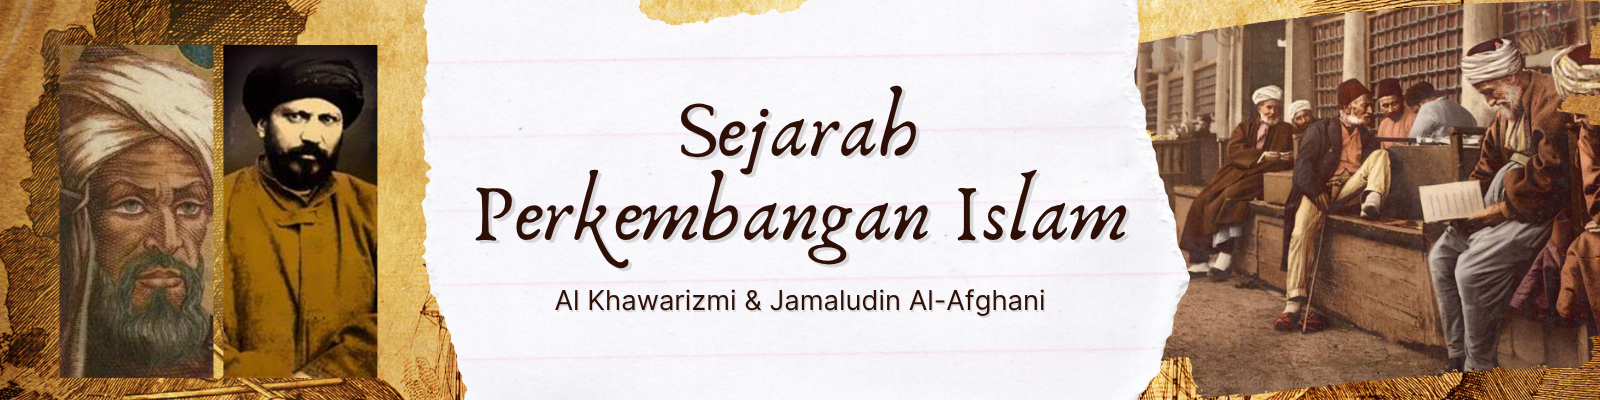 Sejarah
Perkembangan Islam
Al Khawarizmi & Jamaludin Al-Afghani